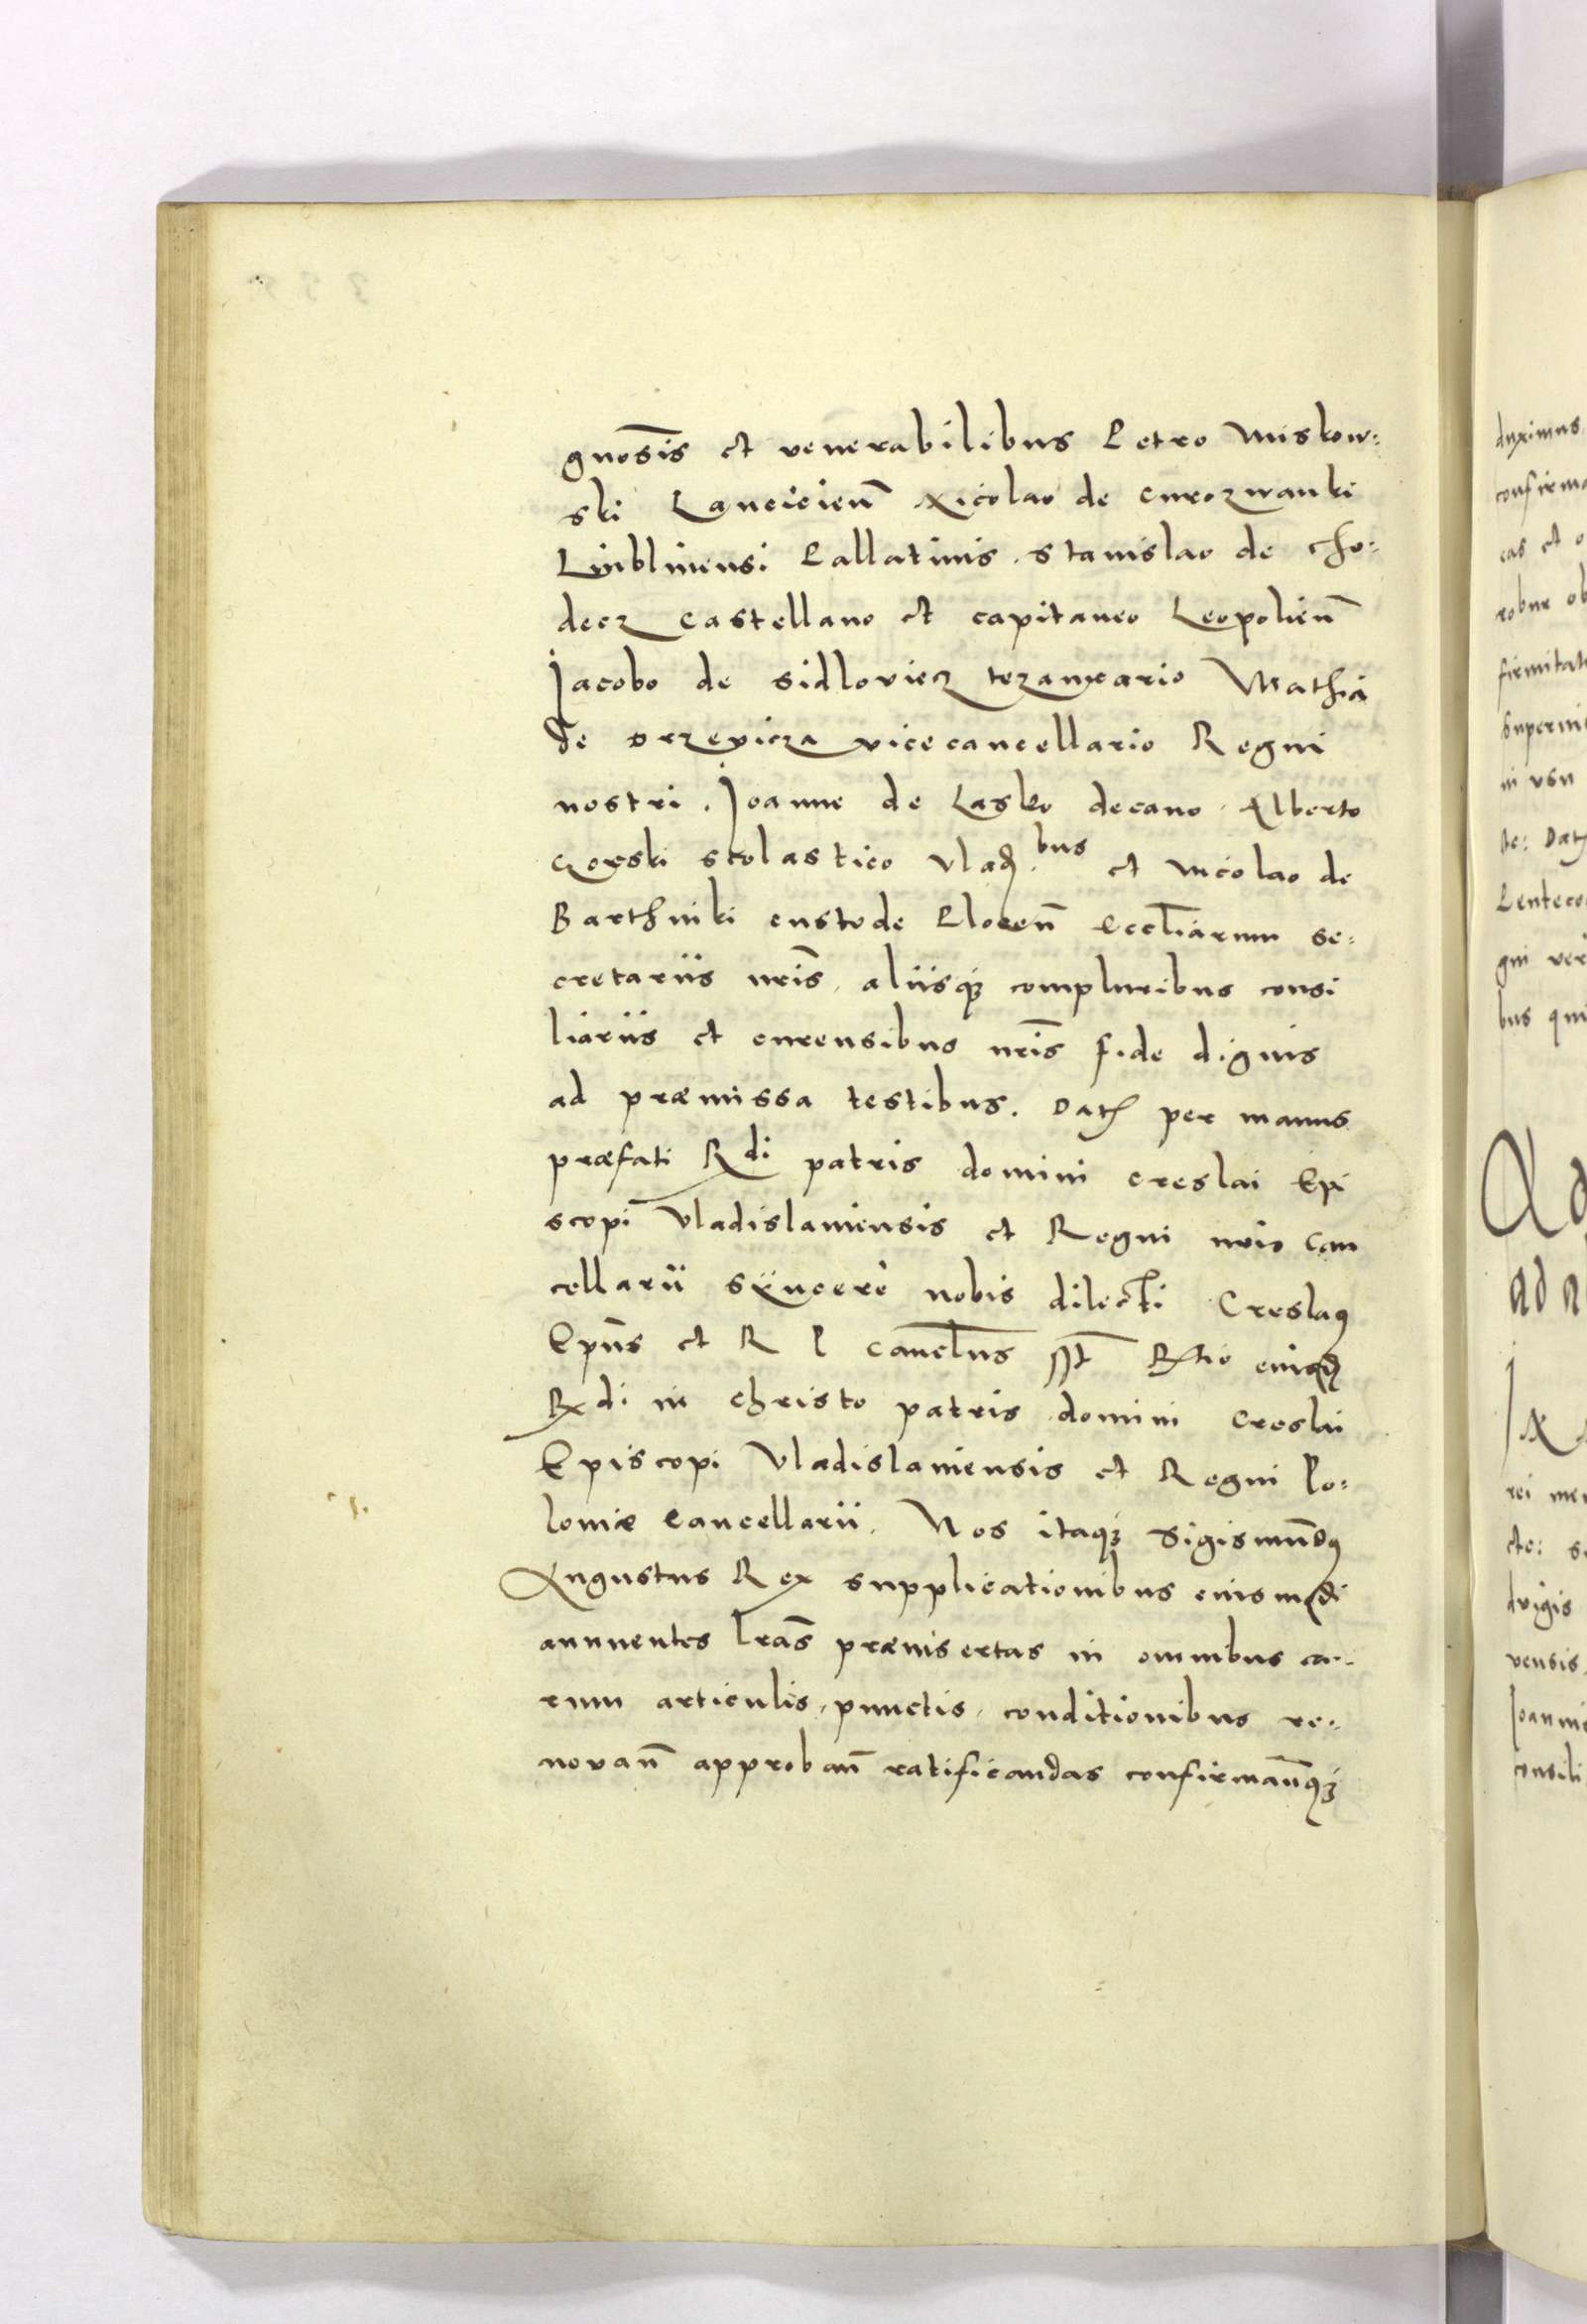 gnoscis et venerabilibus Petro Miskow:
ski Lancicien̄ Nicolao de Curozwanki
Lublinensi Pallatinis. Stanislao de Cho:
decz Castellano et capitaneo Leopolien̄
Jacobo de Sidloviecz tezaurario Mathia
de Drzevicza vicecancellario Regni
nostri. Joanne de Lasko decano. Alberto
Gorski scolastico Vlad.bus et Nicolao de
Barthniki custode Plocen̄ Eccl̄iarum se:
cretariis nr̄is, aliisq3 compluribus consi
liariis et curensibus nr̄is fide dignis
ad præmissa testibus. Dat per manus
præfati Rdi patris domini Creslai Epi
scopi Vladislauiensis et Regni nr̄i Can
cellarii syncerè nobis dilecti Creslaus
Ep̄us et R P Cancl̄us sst Rtio eiusd
Rdi in Christo patris domini Creslai
Episcopi Vladislauiensis et Regni Po:
loniæ Cancellarii. Nos itaq3 Sigismūdus
Augustus Rex supplicationibus eiusmodi
annuentes l̄ras præinsertas in omnibus ea:
rum articulis, punctis, conditionibus re:
novan̄ approban̄ ratificandas confirman̄q3
duximus
confirma
eas et o
robur ob
firmitat
in usu
Penteco
gni
bus qui
ad
rei
cto:
vensis.
consili